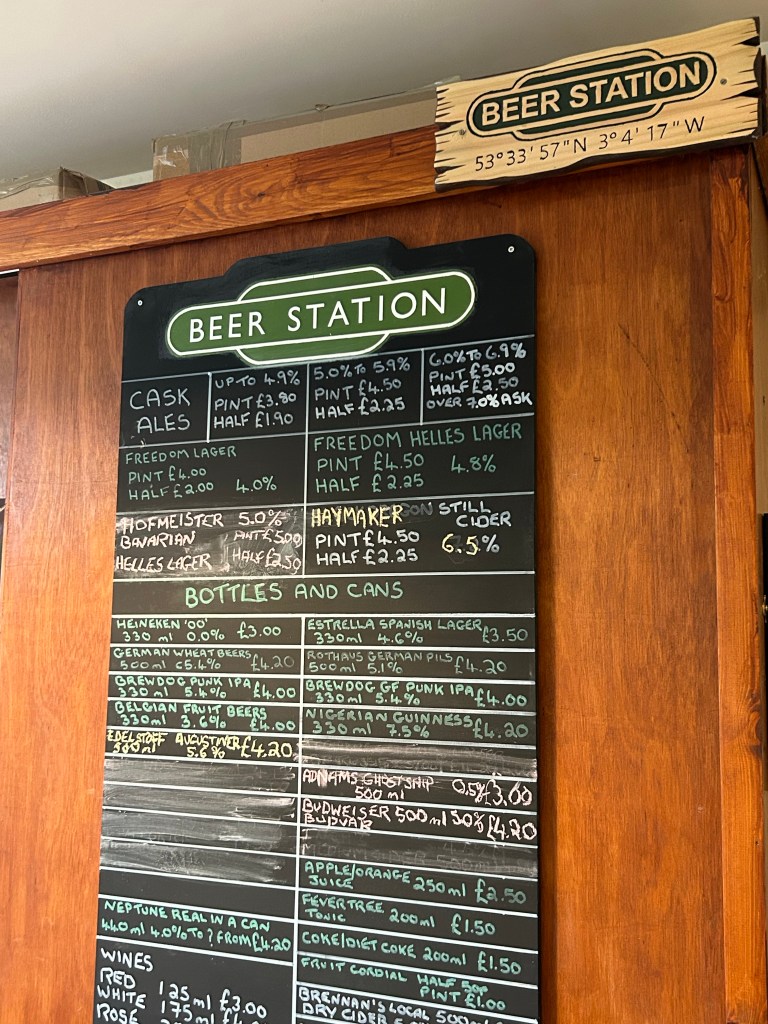 BEER STATION
53°33'57"N 3°4'17"W
BEER STATION
CASK
ALES
UP TO 4.9%
PINT £3.80
HALF £1.90
5.0% TO 5.9%
PINT £4.50
HALF £2.25
6.0% TO 6.9%
PINT £5.00
HALF £2.50
OVER 7.0% ASK
FREEDOM LAGER
PINT £4.00
HALF £2.00 4.0%
FREEDOM HELLES LAGER
PINT £4.50 4.8%
HALF £2.25
HOFMEISTER 5.0%
BAVARIAN PINT £5.00
HELLES LAGER HALF £2.50
HAYMAKER STILL
CIDER
PINT £4.50 6.5%
HALF £2.25
BOTTLES AND CANS
HEINEKEN '00'
330 ml 0.0% £3.00
ESTRELLA SPANISH LAGER
330ml 4.6% £3.50
GERMAN WHEAT BEERS
500ml c5.4% £4.20
ROTHAUS GERMAN PILS
500ml 5.1% £4.20
BREWDOG PUNK IPA
330 ml 5.4% £4.00
BREWDOG GF PUNK IPA
330 ml 5.4% £4.00
BELGIAN FRUIT BEERS
330ml 3.6% £4.00
NIGERIAN GUINNESS
330 ml 7.5% £4.20
EDELSTOFF AUGUSTINER £4.20
500ml 5.6%
ADNAMS GHOST SHIP 0.5% £3.00
500 ml
BUDWEISER 500ml 5.0% £4.20
BUDVAR
APPLE/ORANGE
JUICE 250ml £2.50
FEVERTREE
TONIC 200ml £1.50
COKE/DIET COKE 200ml £1.50
FRUIT CORDIAL HALF 50p
PINT £1.00
BRENNAN'S LOCAL 500ml
DRY CIDER
NEPTUNE REAL IN A CAN
440ml 4.0% TO ? FROM £4.20
WINES
RED
WHITE
ROSE
125ml £3.00
175ml